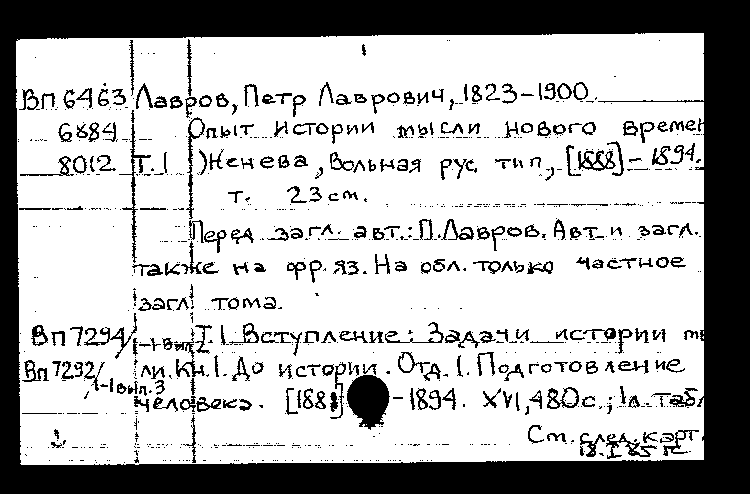 Вп 6463 Лавров, Петр Лаврович, 1823-1900.
6884 Опыт истории мысли нового времен
8012 Т.1 Женева, Вольная рус. тип., [1888]-1894.
т. 23 см.
Перед загл. авт.: П.Лавров. Авт. и загл.
также на фр. яз. На обл. только частное
загл. тома.
Вп 7294/1-1 вып.2 Т.1. Вступление: Задачи истории мы
Вп 7292/1-1 вып.3 ли. Кн.1. До истории. Отд.1. Подготовление
человека. [1888]-1894. XVI, 480 с.; 1 л. табл
См. след. карт.
18.I.85